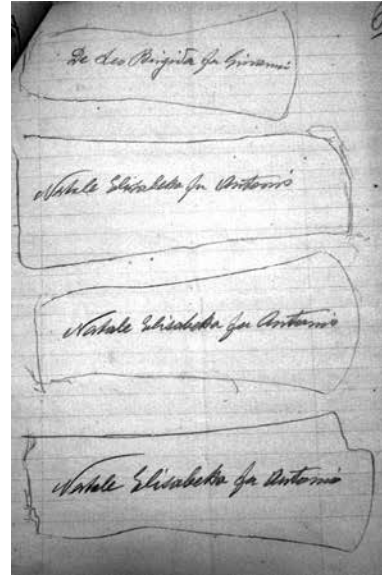 De Leo Brigida fu Giovanni
Natale Elisabetta fu Antonio
Natale Elisabetta fu Antonio
Natale Elisabetta fu Antonio